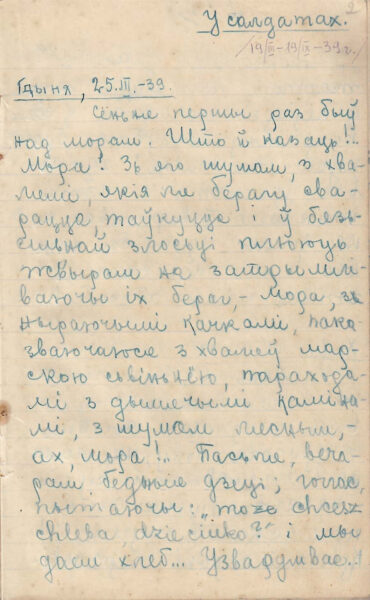 2
У салдатах.
19/III-19/IX-39.г.
Гдыня, 25.III.-39.
Сёньня першы раз быў
над морам. Што й казаць!..
Мора! Зь яго шумам, з хва-
лямі, якія ля берагу сва-
рацца, таўкуцца і ў бязь-
сільнай злосьці плююць
жвірам на затрымлі-
ваючы іх бераг, - мора, зь
ныраючымі качкамі, пака
зваючаюся з хваляў мар-
скою сьвіньнёю, парахода-
мі з дымячымі каміна-
мі, з шумам лясным, -
ах, мора!.. Пасьля, веча-
рам бедныя дзеці; голас,
пытаючы: „może chcesz
chleba, dziecinko?" і мы
даем хлеб... Узвардмвае..